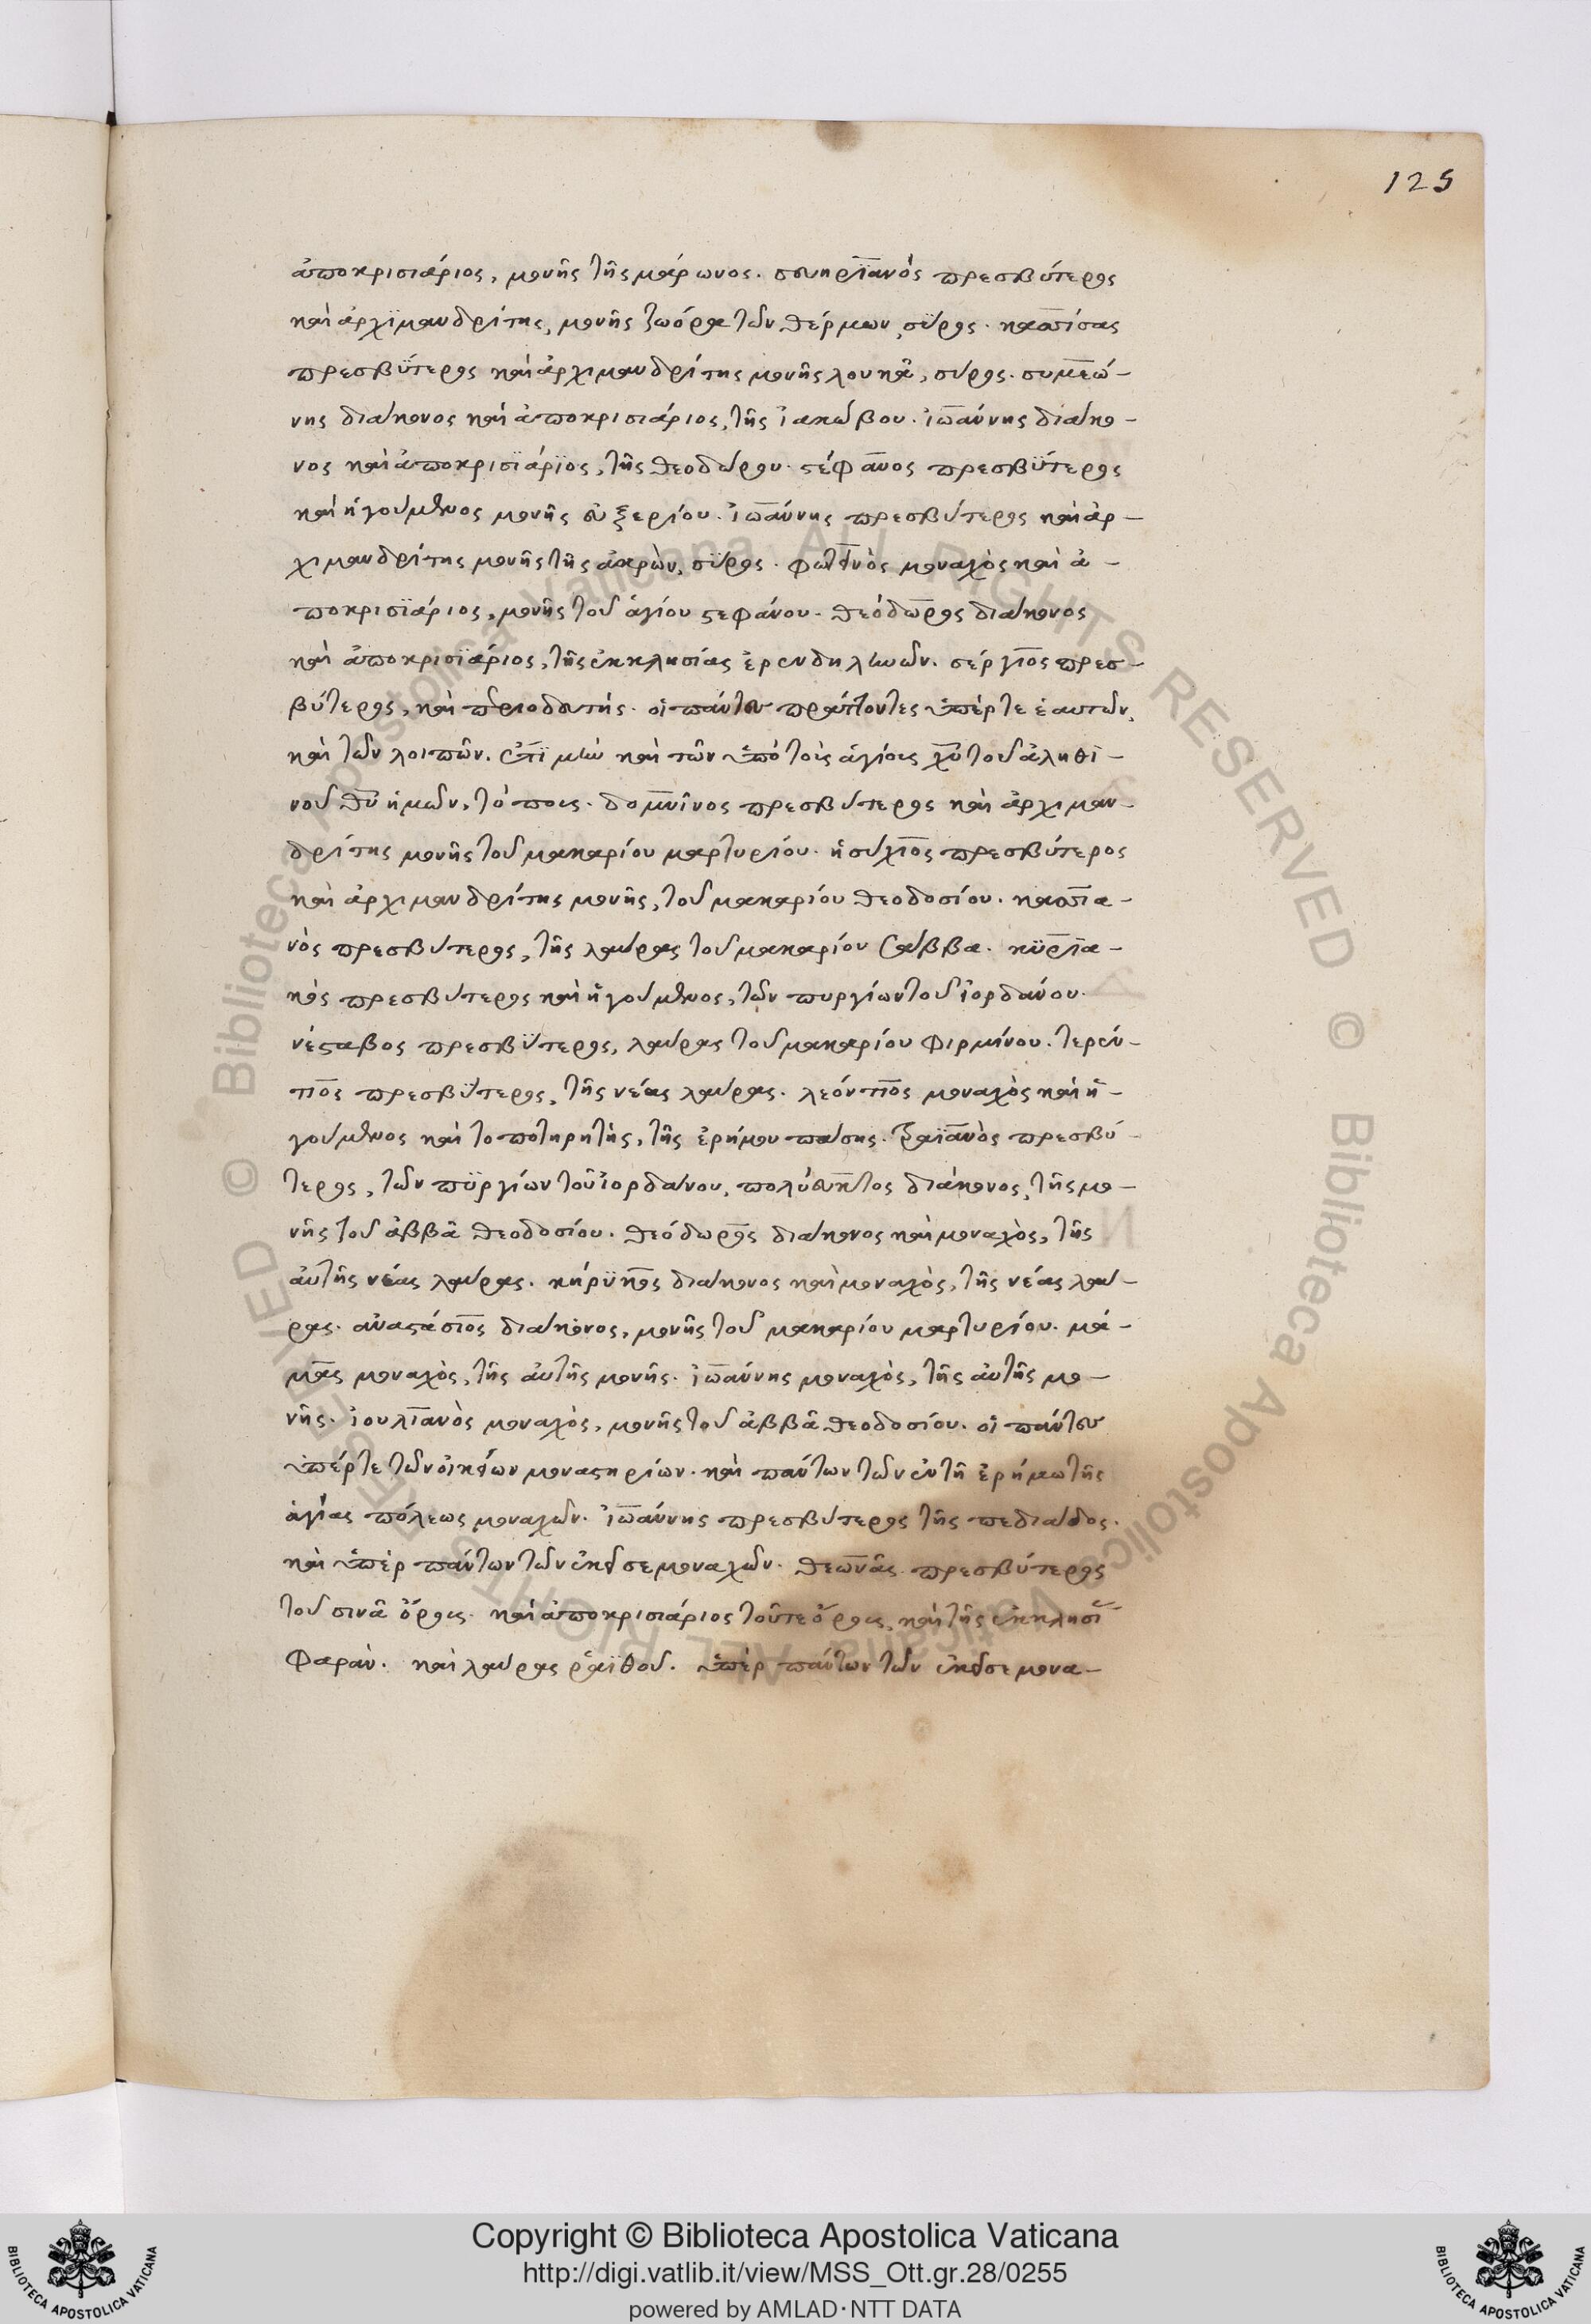 125
ἀποκρισιάριος, μονῆς τῆς μάρωνος. σευηριανὸς πρεσβύτερος
καὶ ἀρχϊμανδρίτης, μονῆς ζωόρα τῶν θέρμων, σύρος. κασίσας
πρεσβύτερος καὶ ἀρχιμανδρίτης μονῆς λουκᾶ, σύρος. συμεώ-
νης διάκονος καὶ ἀποκρισιάριος, τῆς ἰακώβου. ἰωάννης διάκο-
νος καὶ ἀποκρισϊάρϊος, τῆς θεοδώρου. στέφανος πρεσβύτερος
καὶ ἡγούμενος μονῆς εὐξερίου. ἰωάννης πρεσβύτερος καὶ ἀρ-
χιμανδρίτης μονῆς τῆς ἀκρὼν, σύρος. φωτεινὸς μοναχὸς καὶ ἀ-
ποκρισϊάριος, μονῆς τοῦ ἁγίου στεφάνου. θεόδωρος διάκονος
καὶ ἀποκρισϊάριος, τῆς ἐκκλησίας ἐρενδηλινῶν. σέργιος πρεσ-
βύτερος, καὶ περιοδευτής. οἱ πάντες πράττοντες ὑπέρ τε ἑαυτῶν,
καὶ τῶν λοιπῶν. ἔτϊ μὴν καὶ τῶν ὑπὸ τοὺς ἁγίους χυ τοῦ ἀληθι-
νοῦ θυ ἡμῶν, τόπους. δομνῖνος πρεσβύτερος καὶ ἀρχιμαν-
δρίτης μονῆς τοῦ μακαρίου μαρτυρίου. ἡσύχιος πρεσβύτερος
καὶ ἀρχιμανδρίτης μονῆς, τοῦ μακαρίου θεοδοσίου. κασια-
νὸς πρεσβύτερος, τῆς λαύρας τοῦ μακαρίου Σάββα. κϋρϊα-
κὸς πρεσβύτερος καὶ ἡγούμενος, τῶν πυργίων τοῦ ἰορδάνου.
νέσταβος πρεσβύτερος, λαύρας τοῦ μακαρίου Φιρμίνου. τερέν-
τιος πρεσβύτερος, τῆς νέας λαύρας. λεόντιος μοναχὸς καὶ ἡ-
γούμενος καὶ τοποτηρητὴς, τῆς ἐρήμου πάσης. τραϊανὸς πρεσβύ-
τερος, τῶν πϋργίων τοῦ ἰορδάνου, πολύευκτος διάκονος, τῆς μο-
νῆς τοῦ ἀββᾶ θεοδοσίου. θεόδωρος διάκονος καὶ μοναχὸς, τῆς
αὐτῆς νέας λαύρας. κήρϋκος διάκονος καὶ μοναχὸς, τῆς νέας λαύ-
ρας. ἀναστάσιος διάκονος, μονῆς τοῦ μακαρίου μαρτυρίου. μά-
μας μοναχὸς, τῆς αὐτῆς μονῆς. ἰωάννης μοναχὸς, τῆς αὐτῆς μο-
νῆς. ἰουλιανὸς μοναχὸς, μονῆς τοῦ ἀββᾶ θεοδοσίου. οἱ πάντες
ὑπέρ τε τῶν οἰκείων μοναστηρίων. καὶ πάντων τῶν ἐν τῇ ἐρήμω τῆς
ἁγίας πόλεως μοναχῶν. ἰωάννης πρεσβύτερος τῆς πεδιάδος.
καὶ ὑπὲρ πάντων τῶν ἐκεῖσε μοναχῶν. θεωνᾶς πρεσβύτερος
τοῦ σινᾶ ὄρους. καὶ ἀποκρισιάριος τοῦ τε ὄρους, καὶ τῆς ἐκκλησί
Φαράν. καὶ λαύρας ῥαϊθοῦ. ὑπὲρ πάντων τῶν ἐκεῖσε μονα-
Copyright © Biblioteca Apostolica Vaticana
http://digi.vatlib.it/view/MSS_Ott.gr.28/0255
powered by AMLAD·NTT DATA